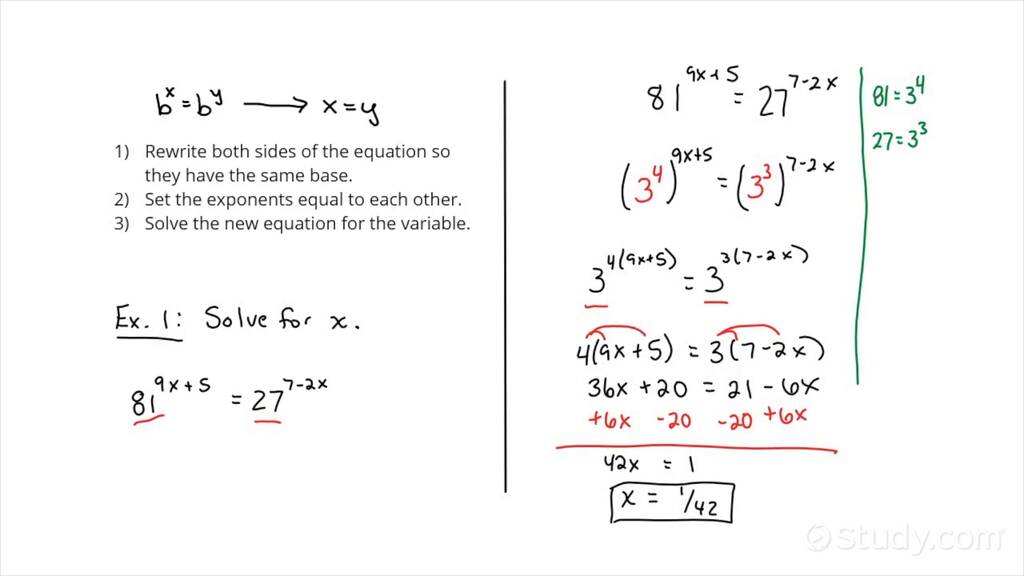 bˣ = bʸ ⟶ x = y
1) Rewrite both sides of the equation so
they have the same base.
2) Set the exponents equal to each other.
3) Solve the new equation for the variable.
Ex. 1: Solve for x.
81^(9x+5) = 27^(7-2x)
81^(9x+5) = 27^(7-2x)
(3^4)^(9x+5) = (3^3)^(7-2x)
3^(4(9x+5)) = 3^(3(7-2x))
4(9x+5) = 3(7-2x)
36x + 20 = 21 - 6x
+6x -20 -20 +6x
42x = 1
x = 1/42
81 = 3^4
27 = 3^3
Study.com